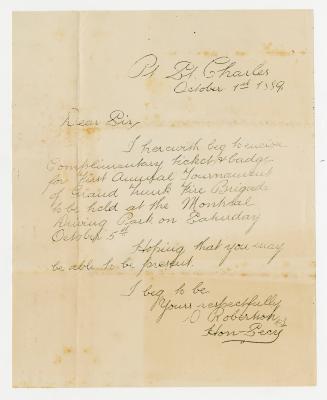 Pt St. Charles
October 1st 1889
Dear Sir,
I herewith beg to enclose
Complimentary ticket & badge
for First Annual Tournament
of Grand Trunk Fire Brigade
to be held at the Montreal
Driving Park on Saturday
October 5th
Hoping that you may
be able to be present.
I beg to be
Yours respectfully
Robertson
Hon-Secy